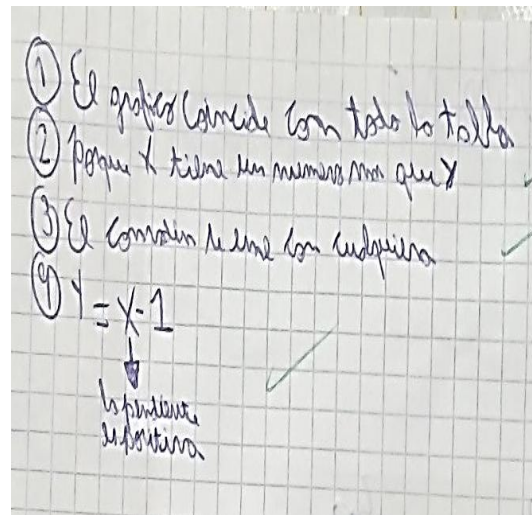 ① El grafico coincide con toda la tabla
② porque X tiene un numero mas que Y
③ El comodin se une con cualquiera
④ Y = X - 1
la pendiente
es positiva